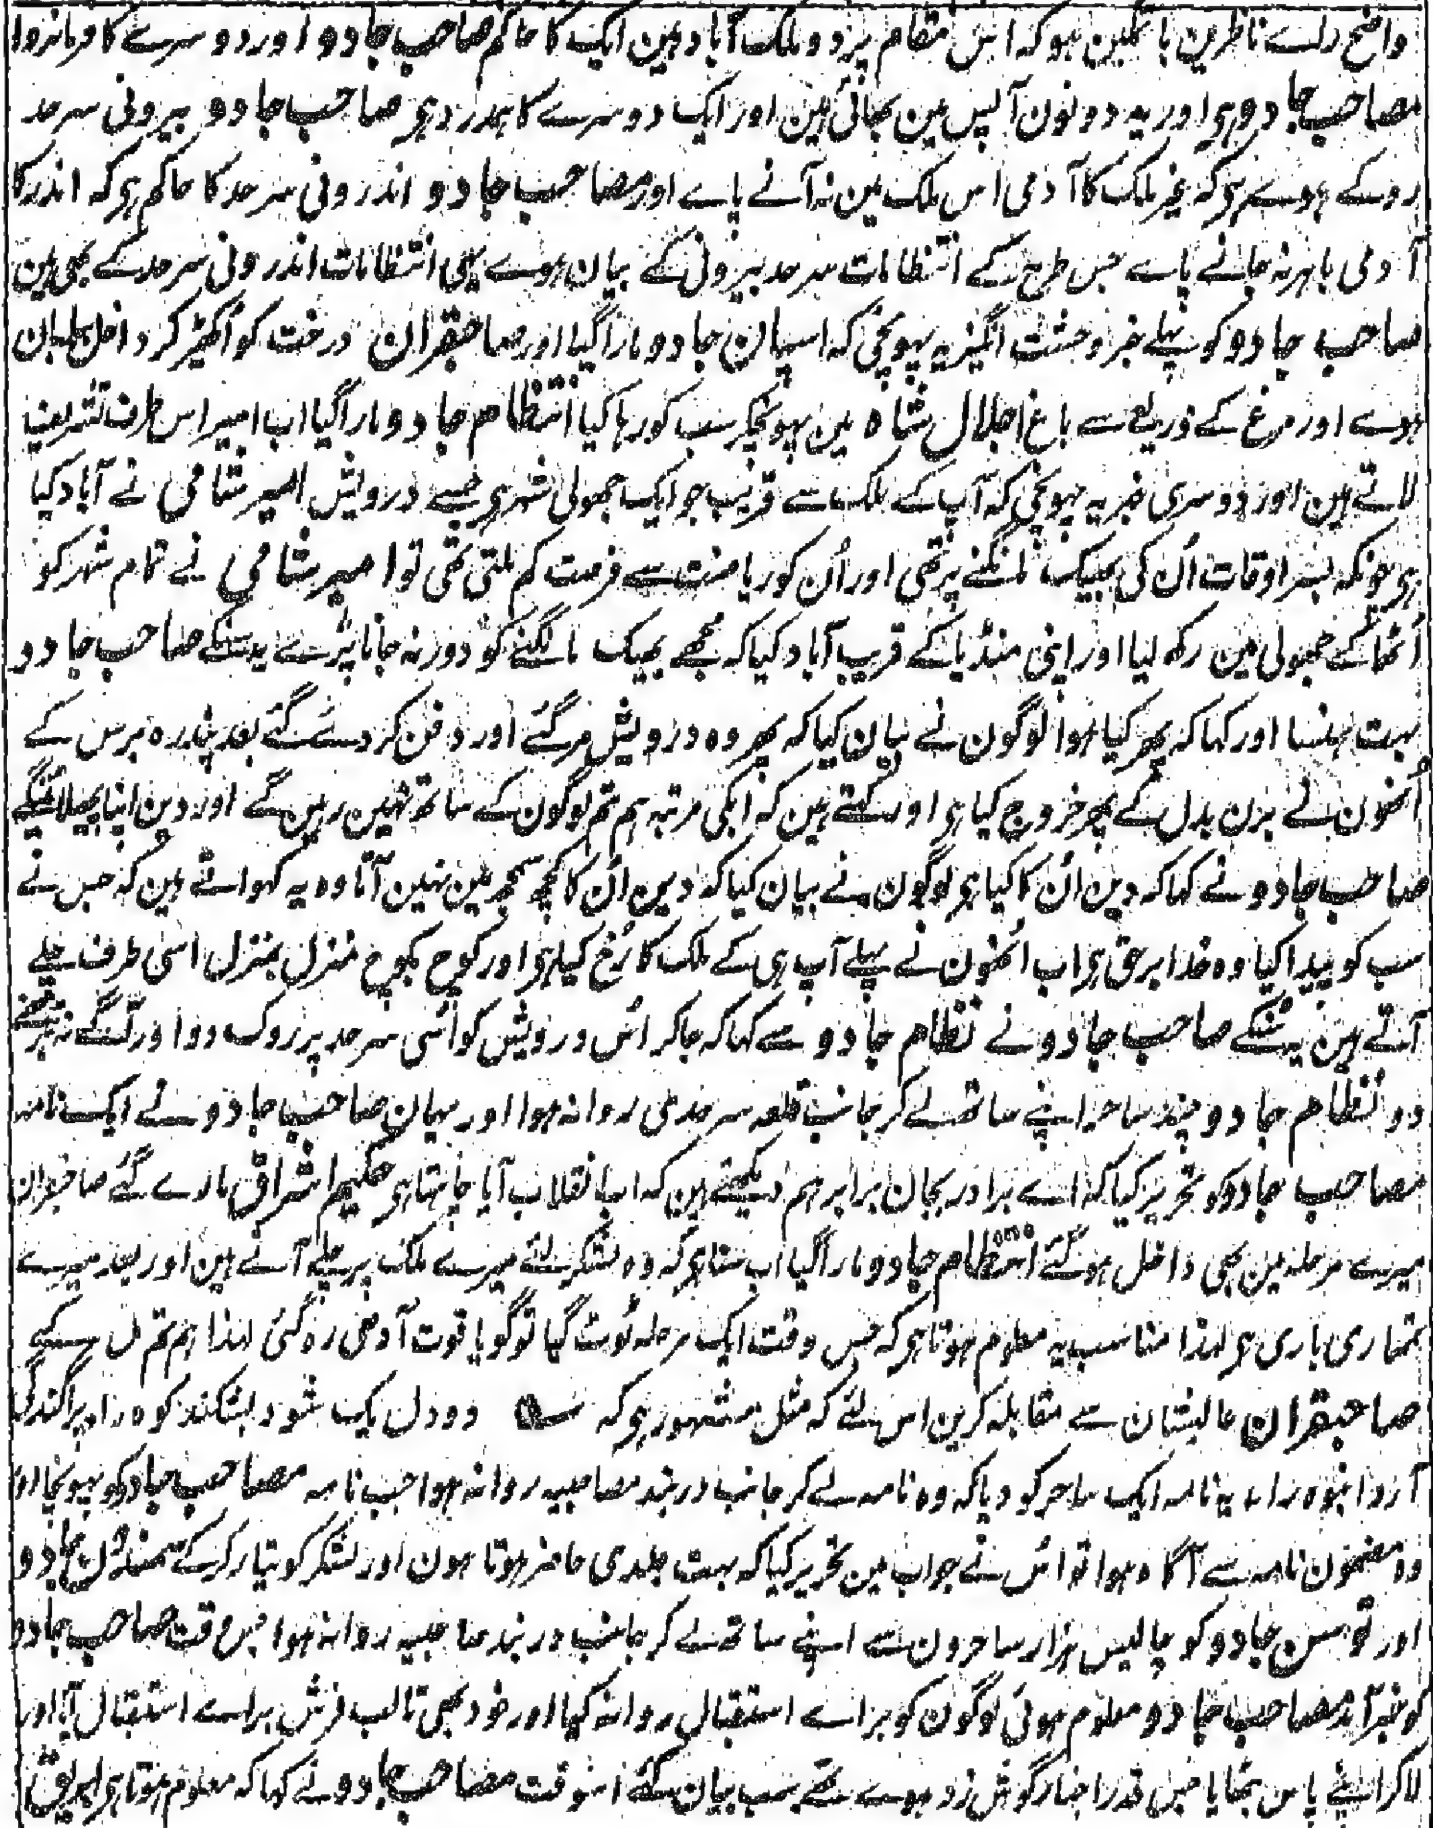 واضح رائے ناظرین باتمکین ہو کہ اس مقام پر دو ملک آباد ہین ایک کا حاکم صاحب جادو اور دوسرے کا فرمانروا
مصاحب جادو ہی اور یہ دونون آپس مین بھائی ہین اور ایک دوسرے کا ہمدرد ہی صاحب جادو بیرونی سرحد
روکے ہوے ہی کہ غیر ملک کا آدمی اس ملک مین نہ آنے پاے اور مصاحب جادو اندرونی سرحد کا حاکم ہی کہ اندر کا
آدمی باہر نہ جانے پاے جس طرح کے انتظامات سرحد بیرونی کے بیان ہوے یہی انتظامات اندرونی سرحد کے بھی ہین
صاحب جادو کو پہلے خبر وحشت انگیز یہ پہونچی کہ اسپان جادو مارا گیا اور صاحبقران درخت کو اُکھیڑ کر داخل
ہوے اور مرغ کے ذریعے سے باغ اجلال شاہ مین پہونچکر سب کو رہا کیا انتظام جادو مارا گیا اب امیر اس طرف تشریف
لاتے ہین اور دوسری خبر یہ پہونچی کہ آپ کے ملک سے قریب جو ایک جھولی شہر ہی جسے درویش امیر شامی نے آباد کیا
ہی چونکہ بسر اوقات اُن کی بھیک مانگنے پر تھی اور اُن کو ریاضت سے فرصت کم ملتی تھی تو امیر شامی نے تمام شہر کو
اُٹھا کے جھولی مین رکھ لیا اور اپنی منڈیا کے قریب آباد کیا کہ مجھے بھیک مانگنے کو دور نہ جانا پڑے یہ سنکے صاحب جادو
بہت ہنسا اور کہا کہ پھر کیا ہوا لوگون نے بیان کیا کہ پھر وہ درویش مر گئے اور دفن کر دئے گئے بعد پندرہ برس کے
اُنھون نے بدن بدل کے پھر خروج کیا ہی اور کہتے ہین کہ ابکی مرتبہ ہم تم لوگون کے ساتھ نہین رہین گے اور دین اپنا پھیلائینگے
صاحب جادو نے کہا کہ دین اُن کا کیا ہی لوگون نے بیان کیا کہ دین اُن کا کچھ سمجھ مین نہین آتا وہ یہ کہواتے ہین کہ جس نے
سب کو پیدا کیا وہ خدا برحق ہی اب اُنھون نے پہلے آپ ہی کے ملک کا رُخ کیا ہی اور کوچ بکوچ منزل بمنزل اسی طرف چلے
آتے ہین یہ سُنکے صاحب جادو نے نظام جادو سے کہا کہ جا کر اُس درویش کو اُسی سرحد پر روک دو اور آگے نہ بڑھنے
دو نظام جادو چند ساحر اپنے ساتھ لے کر جانب قلعہ سرحدی روانہ ہوا اور یہان صاحب جادو نے ایک نامہ
مصاحب جادو کو تحریر کیا کہ اے برادر بجان برابر ہم دیکھتے ہین کہ اب انقلاب آیا چاہتا ہی حکیم اشراق مارے گئے صاحبقران
میرے مرحلہ مین بھی داخل ہو گئے انتظام جادو مارا گیا اب سنا ہی کہ وہ لشکر لئے میرے ملک پر چلے آتے ہین اور بعد میرے
تمھاری باری ہی لہذا مناسب یہ معلوم ہوتا ہی کہ جس وقت ایک مرحلہ ٹوٹ گیا تو گویا قوت آدھی رہ گئی لہذا ہم تم مل کے
صاحبقران عالیشان سے مقابلہ کرین اس لئے کہ مثل مشہور ہی کہ ؎ دو دل یک شود بشکند کوہ را ٭ پراگندگی
آرد انبوہ را ٭ یہ نامہ ایک ساحر کو دیا کہ وہ نامہ لے کر جانب دربند مصاحبیہ روانہ ہوا جب نامہ مصاحب جادو کو پہونچا اور
وہ مضمون نامہ سے آگاہ ہوا تو اُس نے جواب مین تحریر کیا کہ بہت جلدی حاضر ہوتا ہون اور لشکر کو تیار کر کے جادو
اور توسن جادو کو چالیس ہزار ساحرون سے اپنے ساتھ لے کر جانب دربند صاحبیہ روانہ ہوا جس وقت صاحب جادو
کو خبر آمد مصاحب جادو معلوم ہوئی لوگون کو براے استقبال روانہ کیا اور خود بھی تا لب فرش براے استقبال آیا اور
لا کر اپنے پاس بٹھایا جس قدر اخبار گوش زد ہوے تھے سب بیان کئے اسوقت مصاحب جادو نے کہا کہ معلوم ہوتا ہی